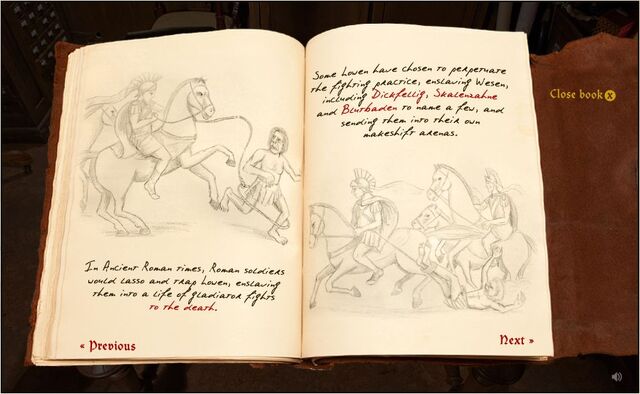 In Ancient Roman times, Roman soldiers
would lasso and trap Lowen, enslaving
them into a life of gladiator fights
to the death.
« Previous
Some Lowen have chosen to perpetuate
the fighting practice, enslaving Wesen,
including Dickfellig, Skalenzahne
and Blutbaden to name a few, and
sending them into their own
makeshift arenas.
Next »
Close book x